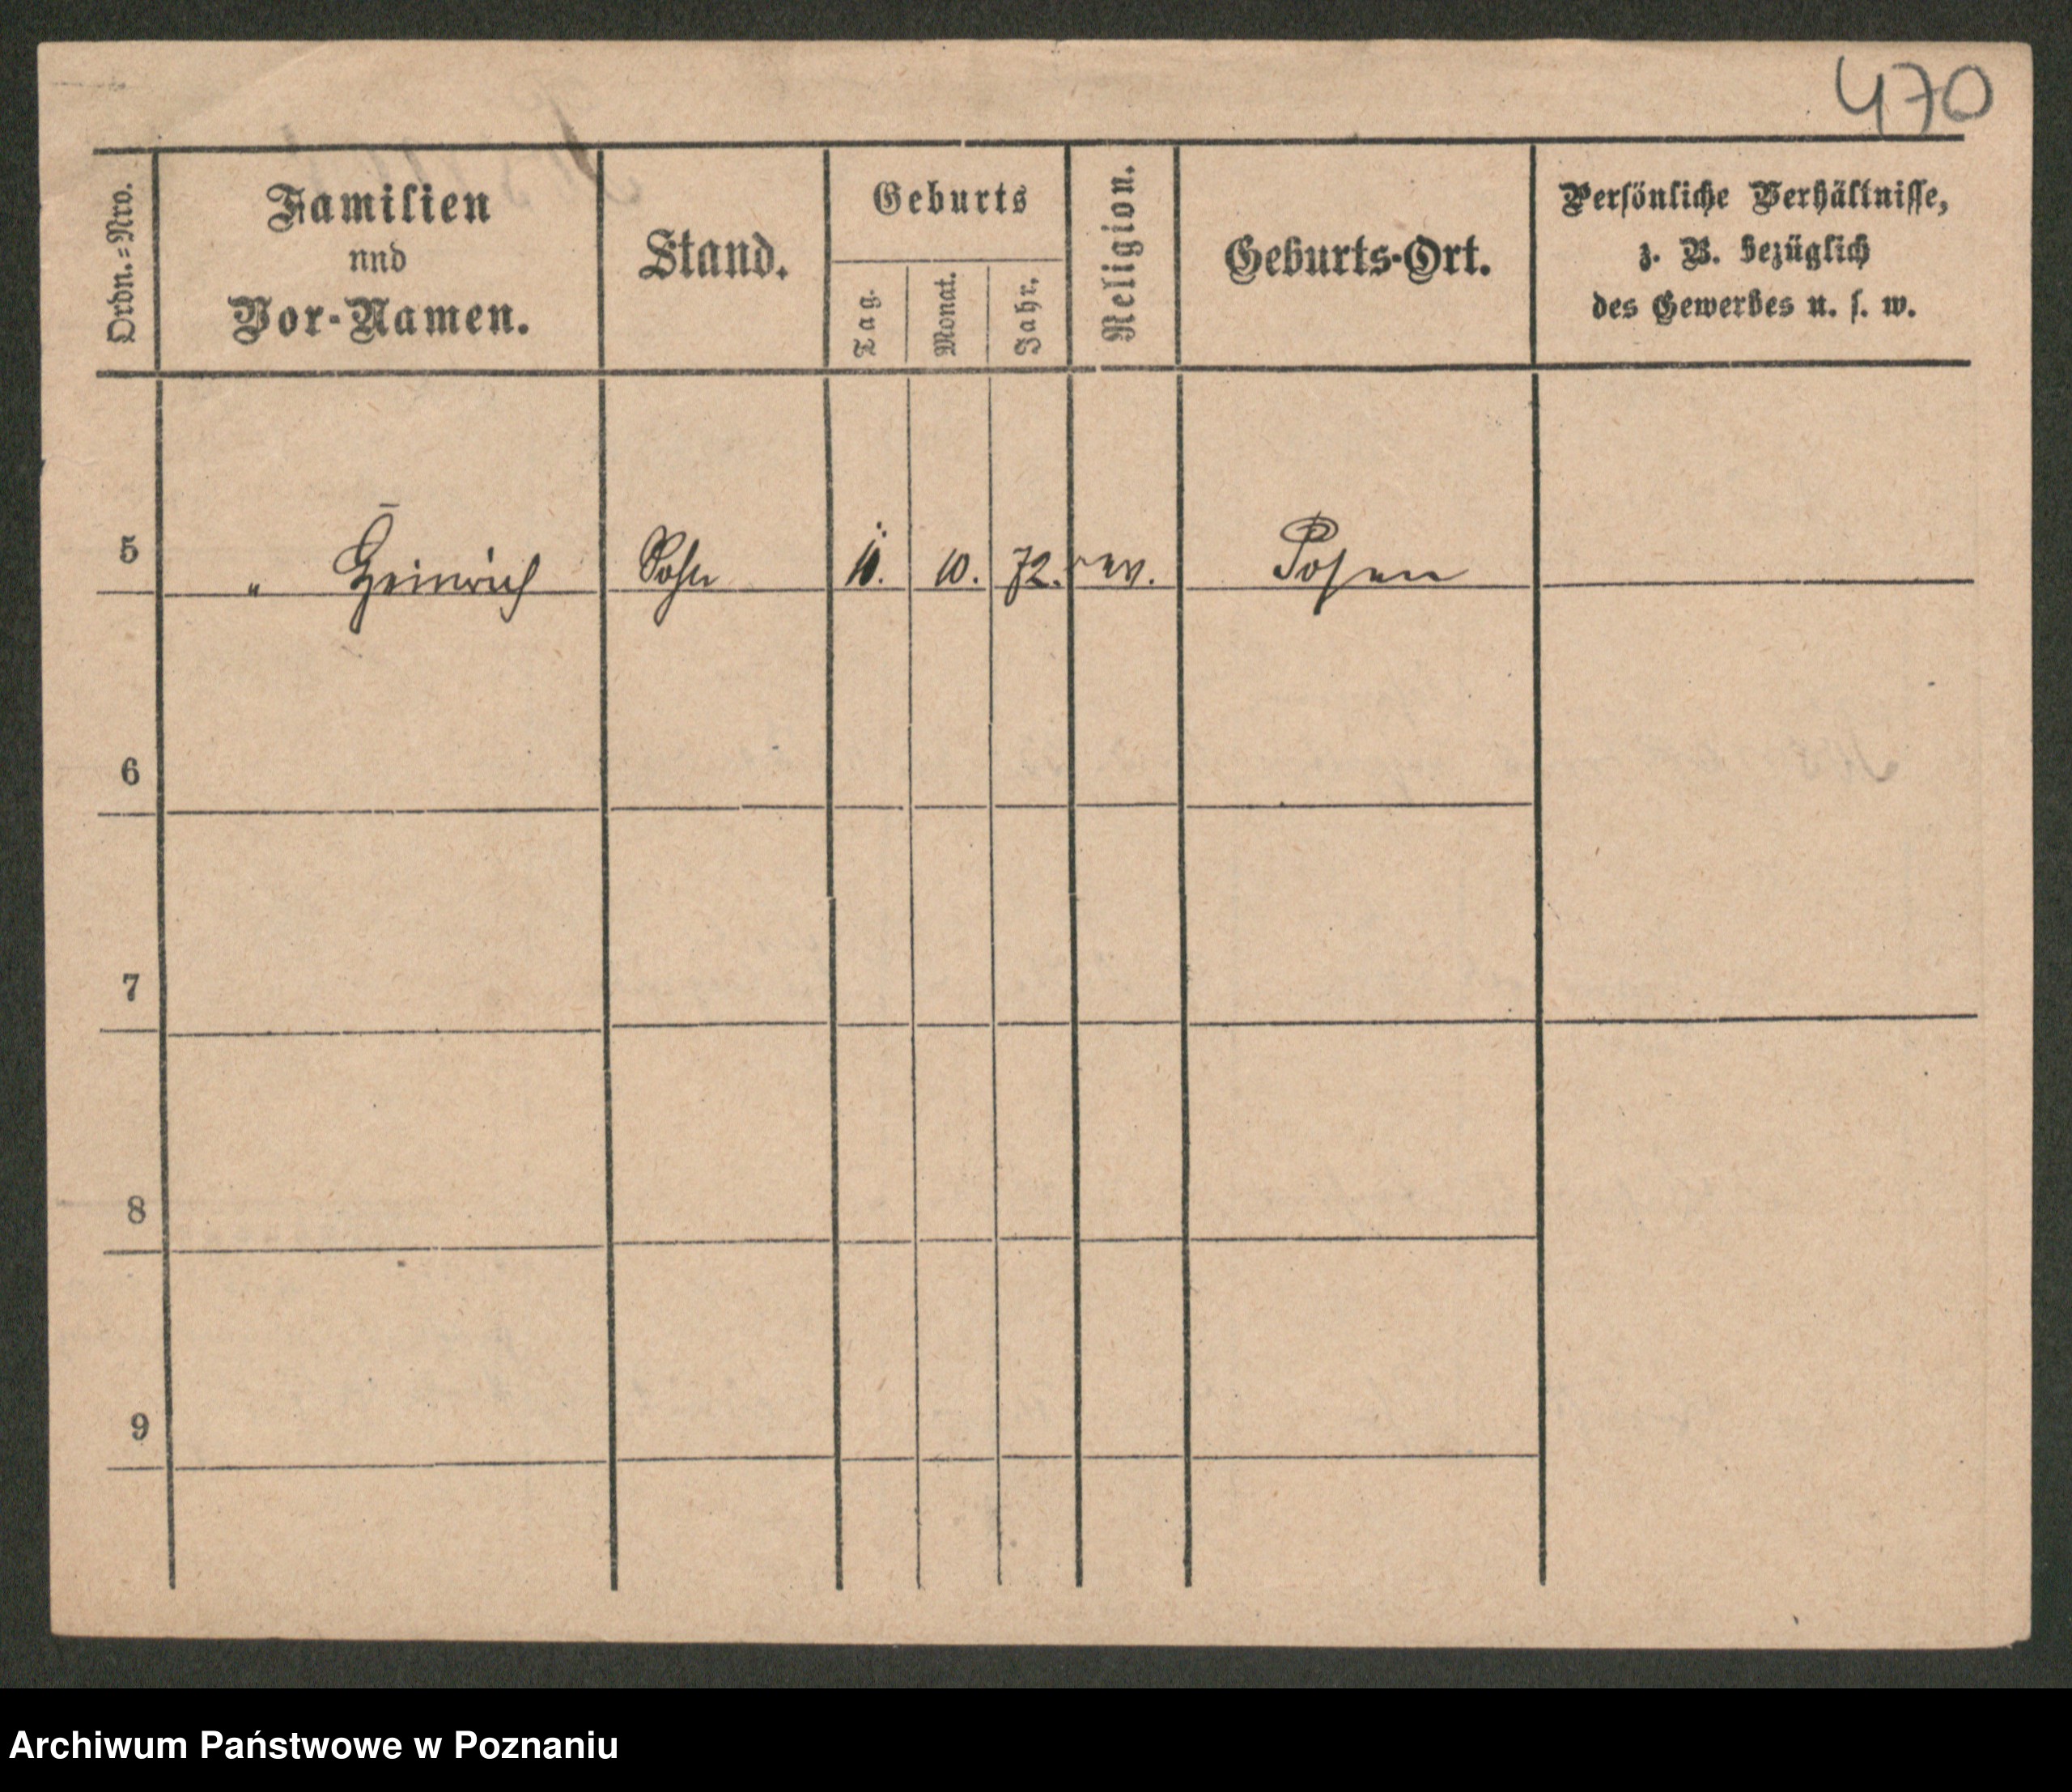 470
Ordn.=Nro.
Familien
und
Vor-Namen.
Stand.
Geburts
Tag.
Monat.
Jahr.
Religion.
Geburts-Ort.
Persönliche Verhältnisse,
z. B. bezüglich
des Gewerbes u. s. w.
5 " Heinrich Sohn 10. 72. Posen
6
7
8
9
Archiwum Państwowe w Poznaniu